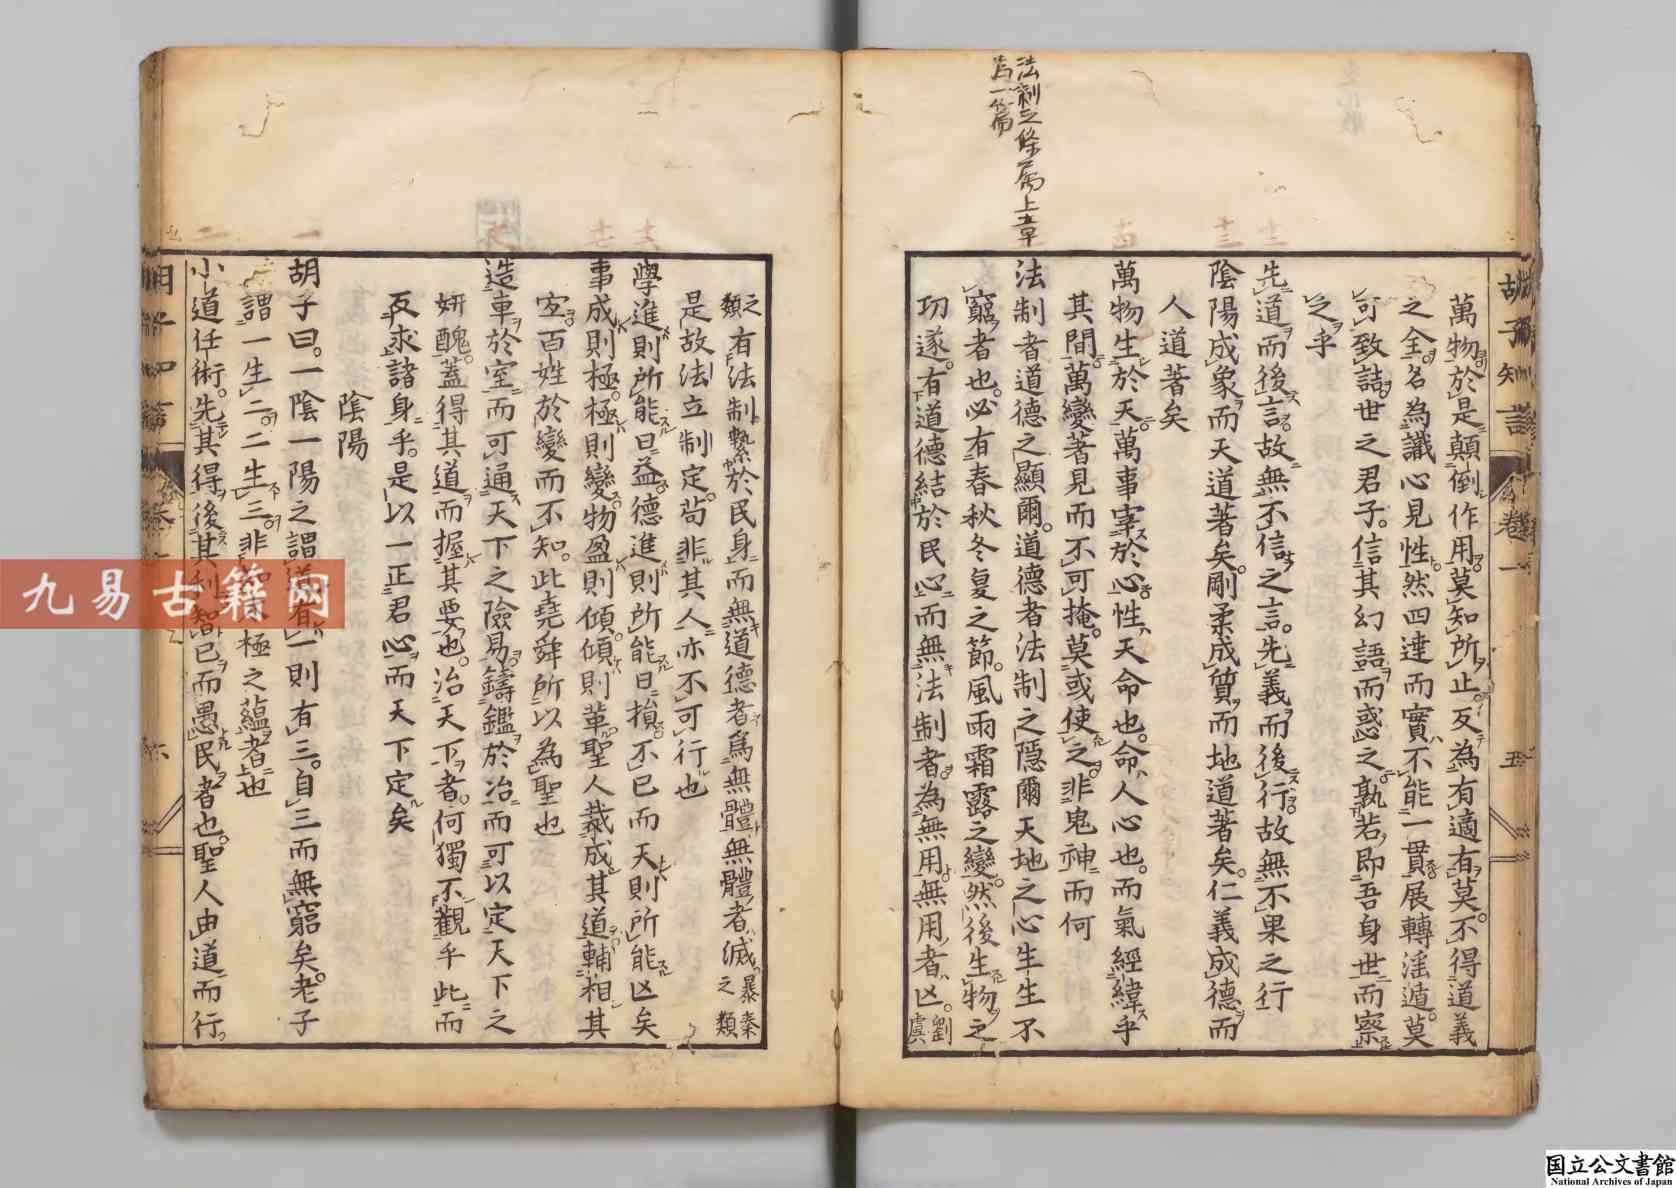 法制之條舊上章
為一篇
胡子知言 卷一 五
萬物於是顛倒作用莫知所止反為有適有莫不得道義
之全名為識心見性然四達而實不能一貫展轉淫遁莫
可致詰世之君子信其幻語而惑之孰若即吾身世而察
之乎
先道而後言故無不信之言先義而後行故無不果之行
陰陽成象而天道著矣剛柔成質而地道著矣仁義成德而
人道著矣
萬物生於天萬事宰於心性天命也命人心也而氣經緯乎
其間萬變著見而不可掩莫或使之非鬼神而何
法制者道德之顯爾道德者法制之隱爾天地之心生生不
窮者也必有春秋冬夏之節風雨霜露之變然後生物之
功遂有道德結於民心而無法制者為無用無用者亡劉虞
之類有法制繫於民身而無道德者為無體無體者滅暴秦之類
是故法立制定苟非其人亦不可行也
學進則所能日益德進則所能日損不已而天則所能亡矣
事成則極極則變物盈則傾傾則革聖人裁成其道輔相其
宜百姓於變而不知此堯舜所以為聖也
造車於室而可通天下之險易鑄鑑於冶而可以定天下之
妍醜蓋得其道而握其要也治天下者何獨不觀乎此而
反求諸身乎是以一正君心而天下定矣
陰陽
胡子曰一陰一陽之謂道有一則有三自三而無窮矣老子
謂一生二二生三非 極之蘊者也
小道任術先其得後其利智已而愚民者也聖人由道而行
六
九易古籍网
国立公文書館
National Archives of Japan